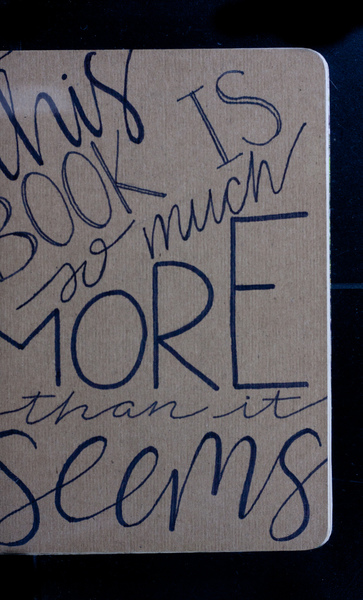 this IS
BOOK
so much
MORE
than it
seems